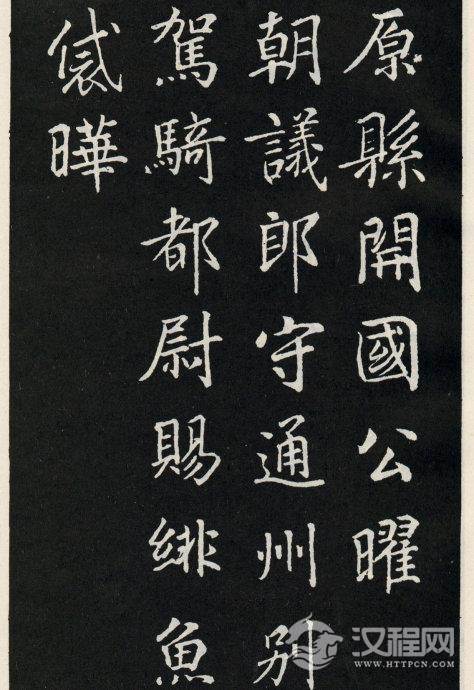 原縣開國公曜
朝議郎守通州別
駕騎都尉賜緋魚
袋曄
汉程网
WWW.HTTPCN.COM